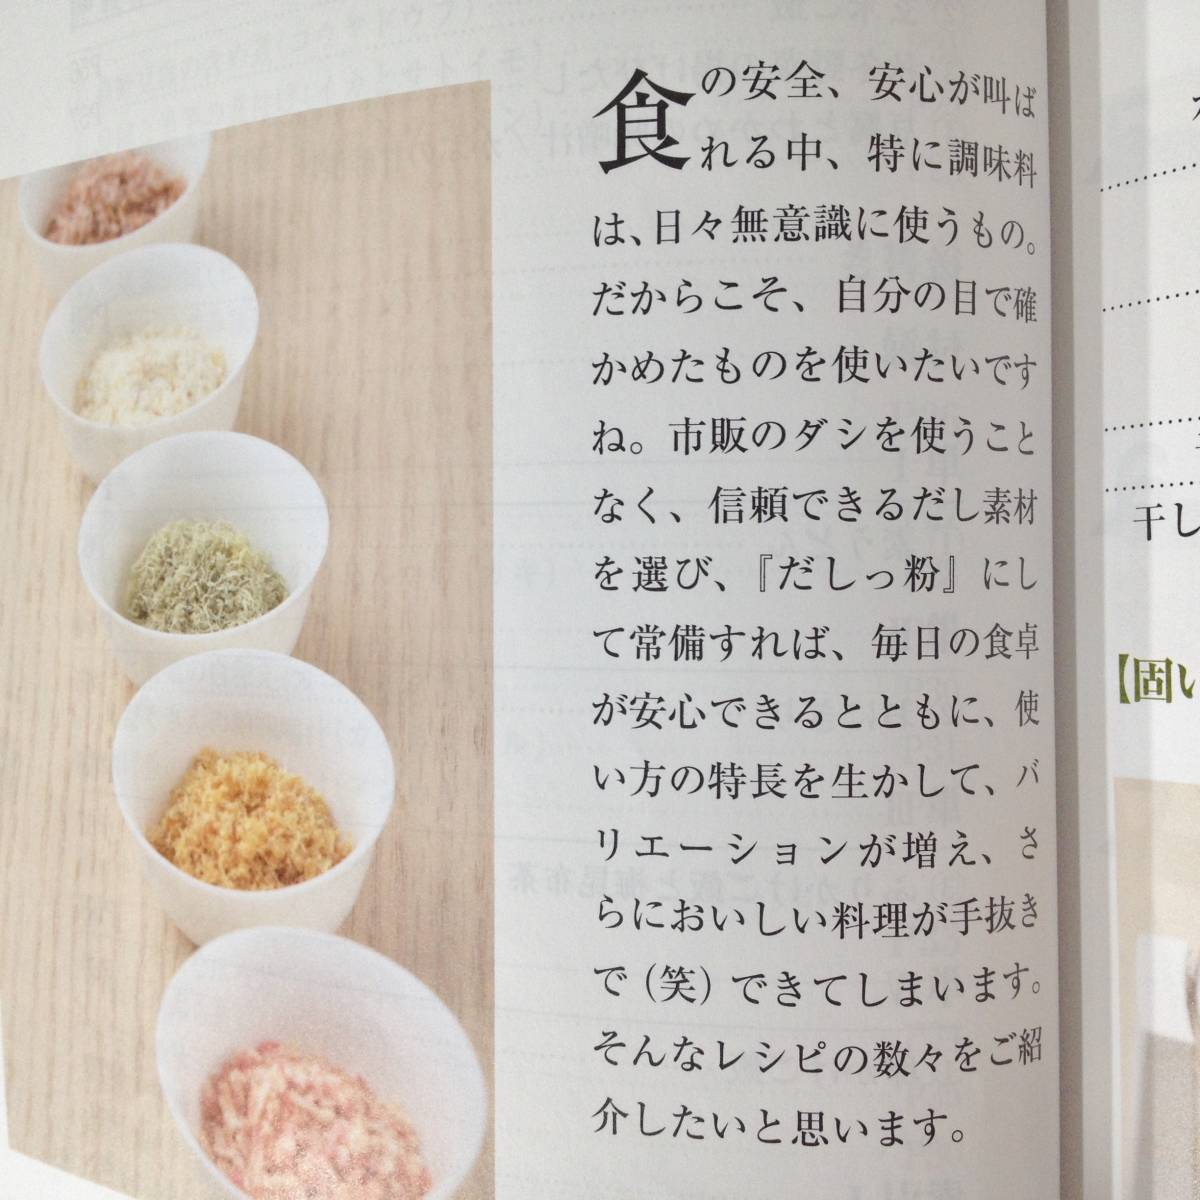 食の安全、安心が叫ば
れる中、特に調味料
は、日々無意識に使うもの。
だからこそ、自分の目で確
かめたものを使いたいです
ね。市販のダシを使うこと
なく、信頼できるだし素材
を選び、『だしっ粉』にし
て常備すれば、毎日の食卓
が安心できるとともに、使
い方の特長を生かして、バ
リエーションが増え、さ
らにおいしい料理が手抜き
で（笑）できてしまいます。
そんなレシピの数々をご紹
介したいと思います。
干し
【固い